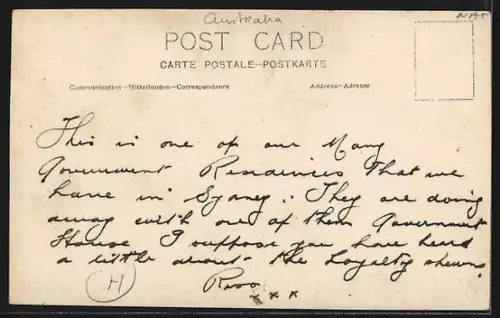 Australia
POST CARD
CARTE POSTALE—POSTKARTE
Communication—Mitteilungen—Correspondance
Address—Adresse
This is one of our Many
Government Residences that we
have in Sydney. They are doing
away with one of them Government
House I suppose you have heard
a little about the Loyalty shewn
Ross
x x x
H